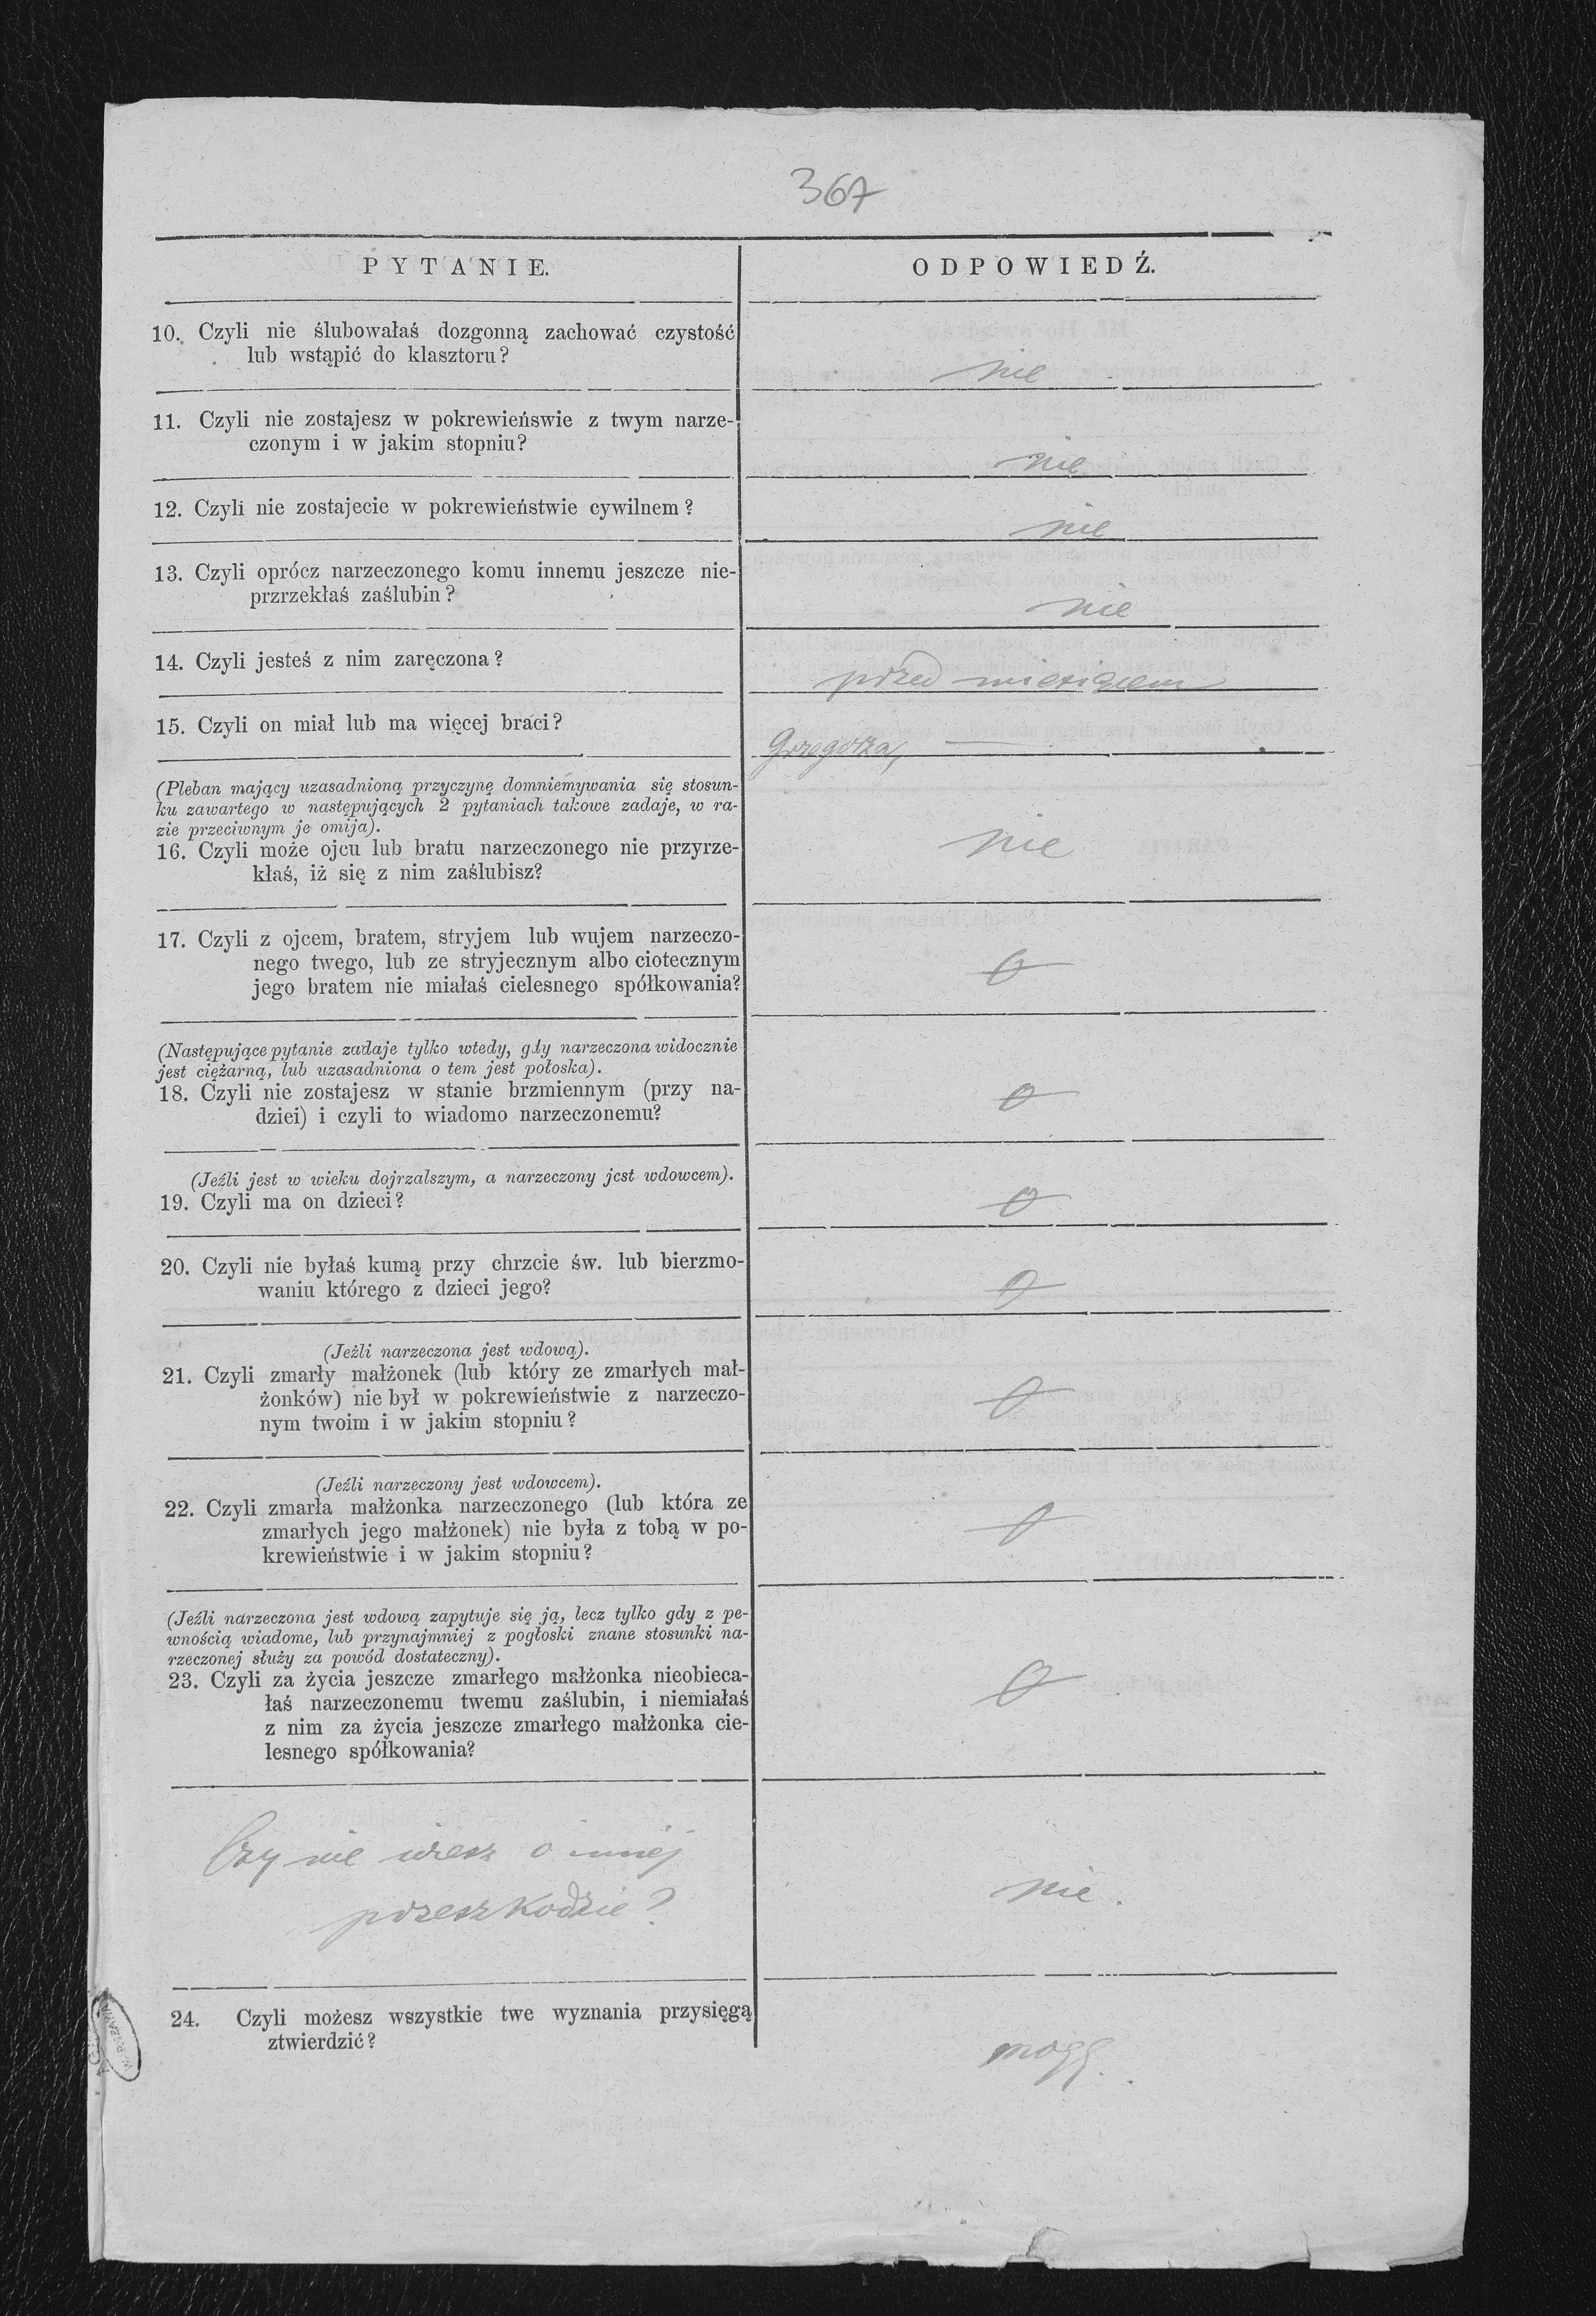 367
PYTANIE.
ODPOWIEDŹ.
10. Czyli nie ślubowałaś dozgonną zachować czystość
lub wstąpić do klasztoru?
nie
11. Czyli nie zostajesz w pokrewieńswie z twym narze-
czonym i w jakim stopniu?
nie
12. Czyli nie zostajecie w pokrewieństwie cywilnem?
nie
13. Czyli oprócz narzeczonego komu innemu jeszcze nie-
przrzekłaś zaślubin?
nie
14. Czyli jesteś z nim zaręczona?
przed miesiącem
15. Czyli on miał lub ma więcej braci?
Grzegorza,
(Pleban mający uzasadnioną przyczynę domniemywania się stosun-
ku zawartego w następujących 2 pytaniach takowe zadaje, w ra-
zie przeciwnym je omija).
16. Czyli może ojcu lub bratu narzeczonego nie przyrze-
kłaś, iż się z nim zaślubisz?
nie
17. Czyli z ojcem, bratem, stryjem lub wujem narzeczo-
nego twego, lub ze stryjecznym albo ciotecznym
jego bratem nie miałaś cielesnego spółkowania?
0
(Następujące pytanie zadaje tylko wtedy, gdy narzeczona widocznie
jest ciężarną, lub uzasadniona o tem jest połoska).
18. Czyli nie zostajesz w stanie brzmiennym (przy na-
dziei) i czyli to wiadomo narzeczonemu?
0
(Jeźli jest w wieku dojrzalszym, a narzeczony jest wdowcem).
19. Czyli ma on dzieci?
0
20. Czyli nie byłaś kumą przy chrzcie św. lub bierzmo-
waniu którego z dzieci jego?
0
(Jeżli narzeczona jest wdową).
21. Czyli zmarły małżonek (lub który ze zmarłych mał-
żonków) nie był w pokrewieństwie z narzeczo-
nym twoim i w jakim stopniu?
0
(Jeźli narzeczony jest wdowcem).
22. Czyli zmarła małżonka narzeczonego (lub która ze
zmarłych jego małżonek) nie była z tobą w po-
krewieństwie i w jakim stopniu?
0
(Jeźli narzeczona jest wdową zapytuje się ją, lecz tylko gdy z pe-
wnością wiadome, lub przynajmniej z pogłoski znane stosunki na-
rzeczonej służy za powód dostateczny).
23. Czyli za życia jeszcze zmarłego małżonka nieobieca-
łaś narzeczonemu twemu zaślubin, i niemiałaś
z nim za życia jeszcze zmarłego małżonka cie-
lesnego spółkowania?
0
Czy nie wiesz o innej
przeszkodzie?
nie.
24. Czyli możesz wszystkie twe wyznania przysięgą
ztwierdzić?
mogę.